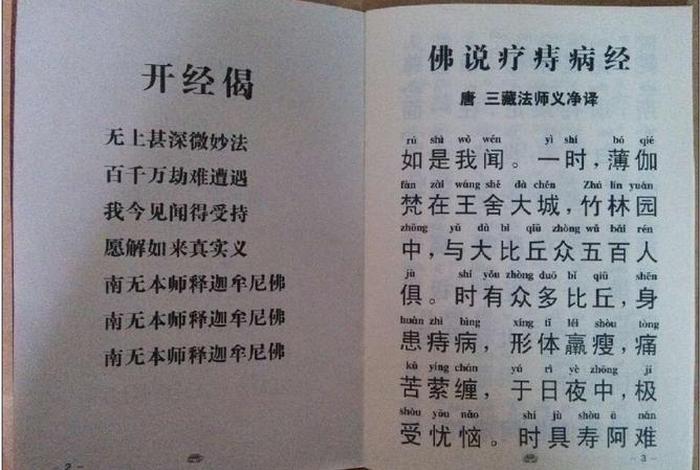 开经偈
无上甚深微妙法
百千万劫难遭遇
我今见闻得受持
愿解如来真实义
南无本师释迦牟尼佛
南无本师释迦牟尼佛
南无本师释迦牟尼佛
- 2 -
佛说疗痔病经
唐 三藏法师义净译
rú shì wǒ wén yì shí bó qié
如是我闻。一时，薄伽
fàn zài wáng shè dà chén Zhú lín yuán
梵在王舍大城，竹林园
zhōng yǔ dà bǐ qiū zhòng wǔ bǎi rén
中，与大比丘众五百人
jù shí yǒu zhòng duō bǐ qiū shēn
俱。时有众多比丘，身
huàn zhì bìng xíng tǐ léi shòu tòng
患痔病，形体羸瘦，痛
kǔ yíng chán yú rì yè zhōng jí
苦萦缠，于日夜中，极
shòu yōu nǎo shí jù shòu ā nán
受忧恼。时具寿阿难
- 3 -